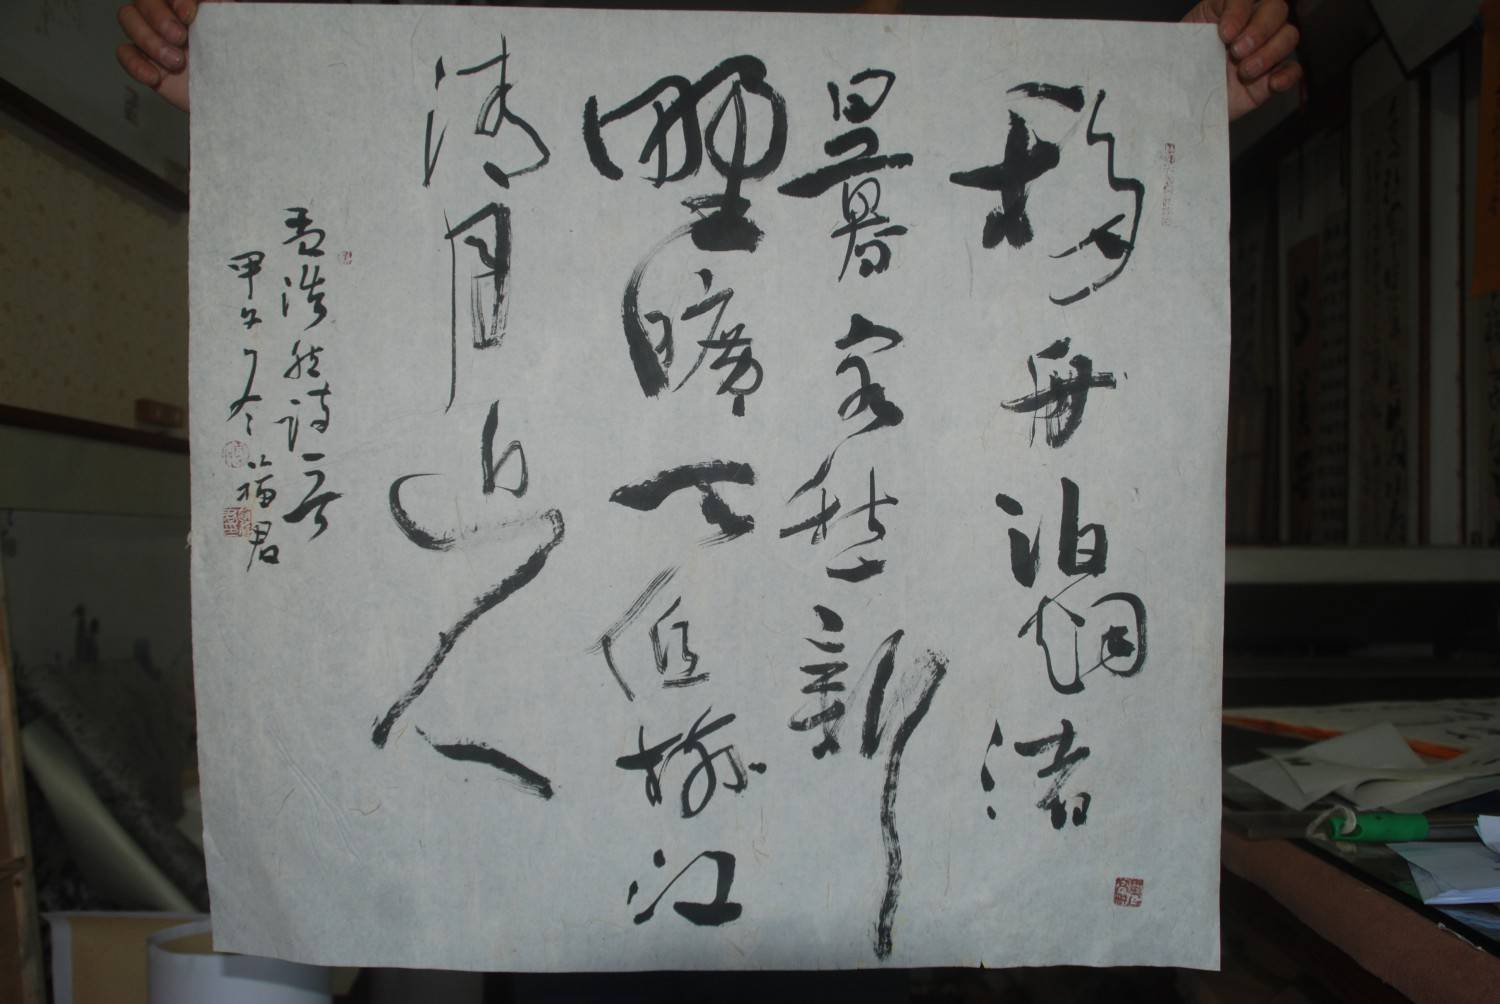 移舟泊烟渚
日暮客愁新
野旷天低树江
清月近人
孟浩然诗意
甲午冬福君